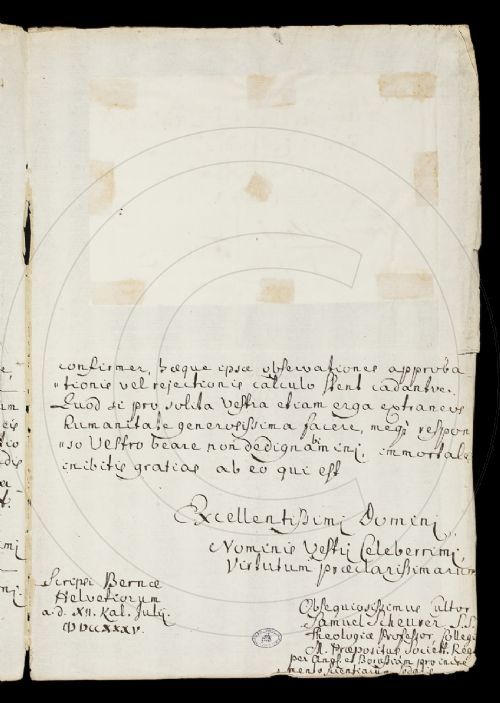 confirmer, hæque ipsæ observationes approba
„tionis vel rejectionis calculo stent cadantve.
Quod si pro solita Vestra etiam erga extraneos
Humanitate generosissima facere, meqꝫ respon
„so Vestro beare non dedignabimini, immortales
inibitis gratias ab eo qui est
Excellentissimi Domini,
Nominis Vestri Celeberrimi,
Virtutum præclarissimarum
Scripsi Bernæ
Helvetiorum
a.d. XII. Kal. Julij.
MDCCXXXV.
Obsequiosissimus Cultor
Samuel Scheurer, S.S.
Theologiæ Professor, Collegij
M. Præpositus Societt. Reg.
per Angl. et Borussiam pro incre
mento scientiarum Sodalis